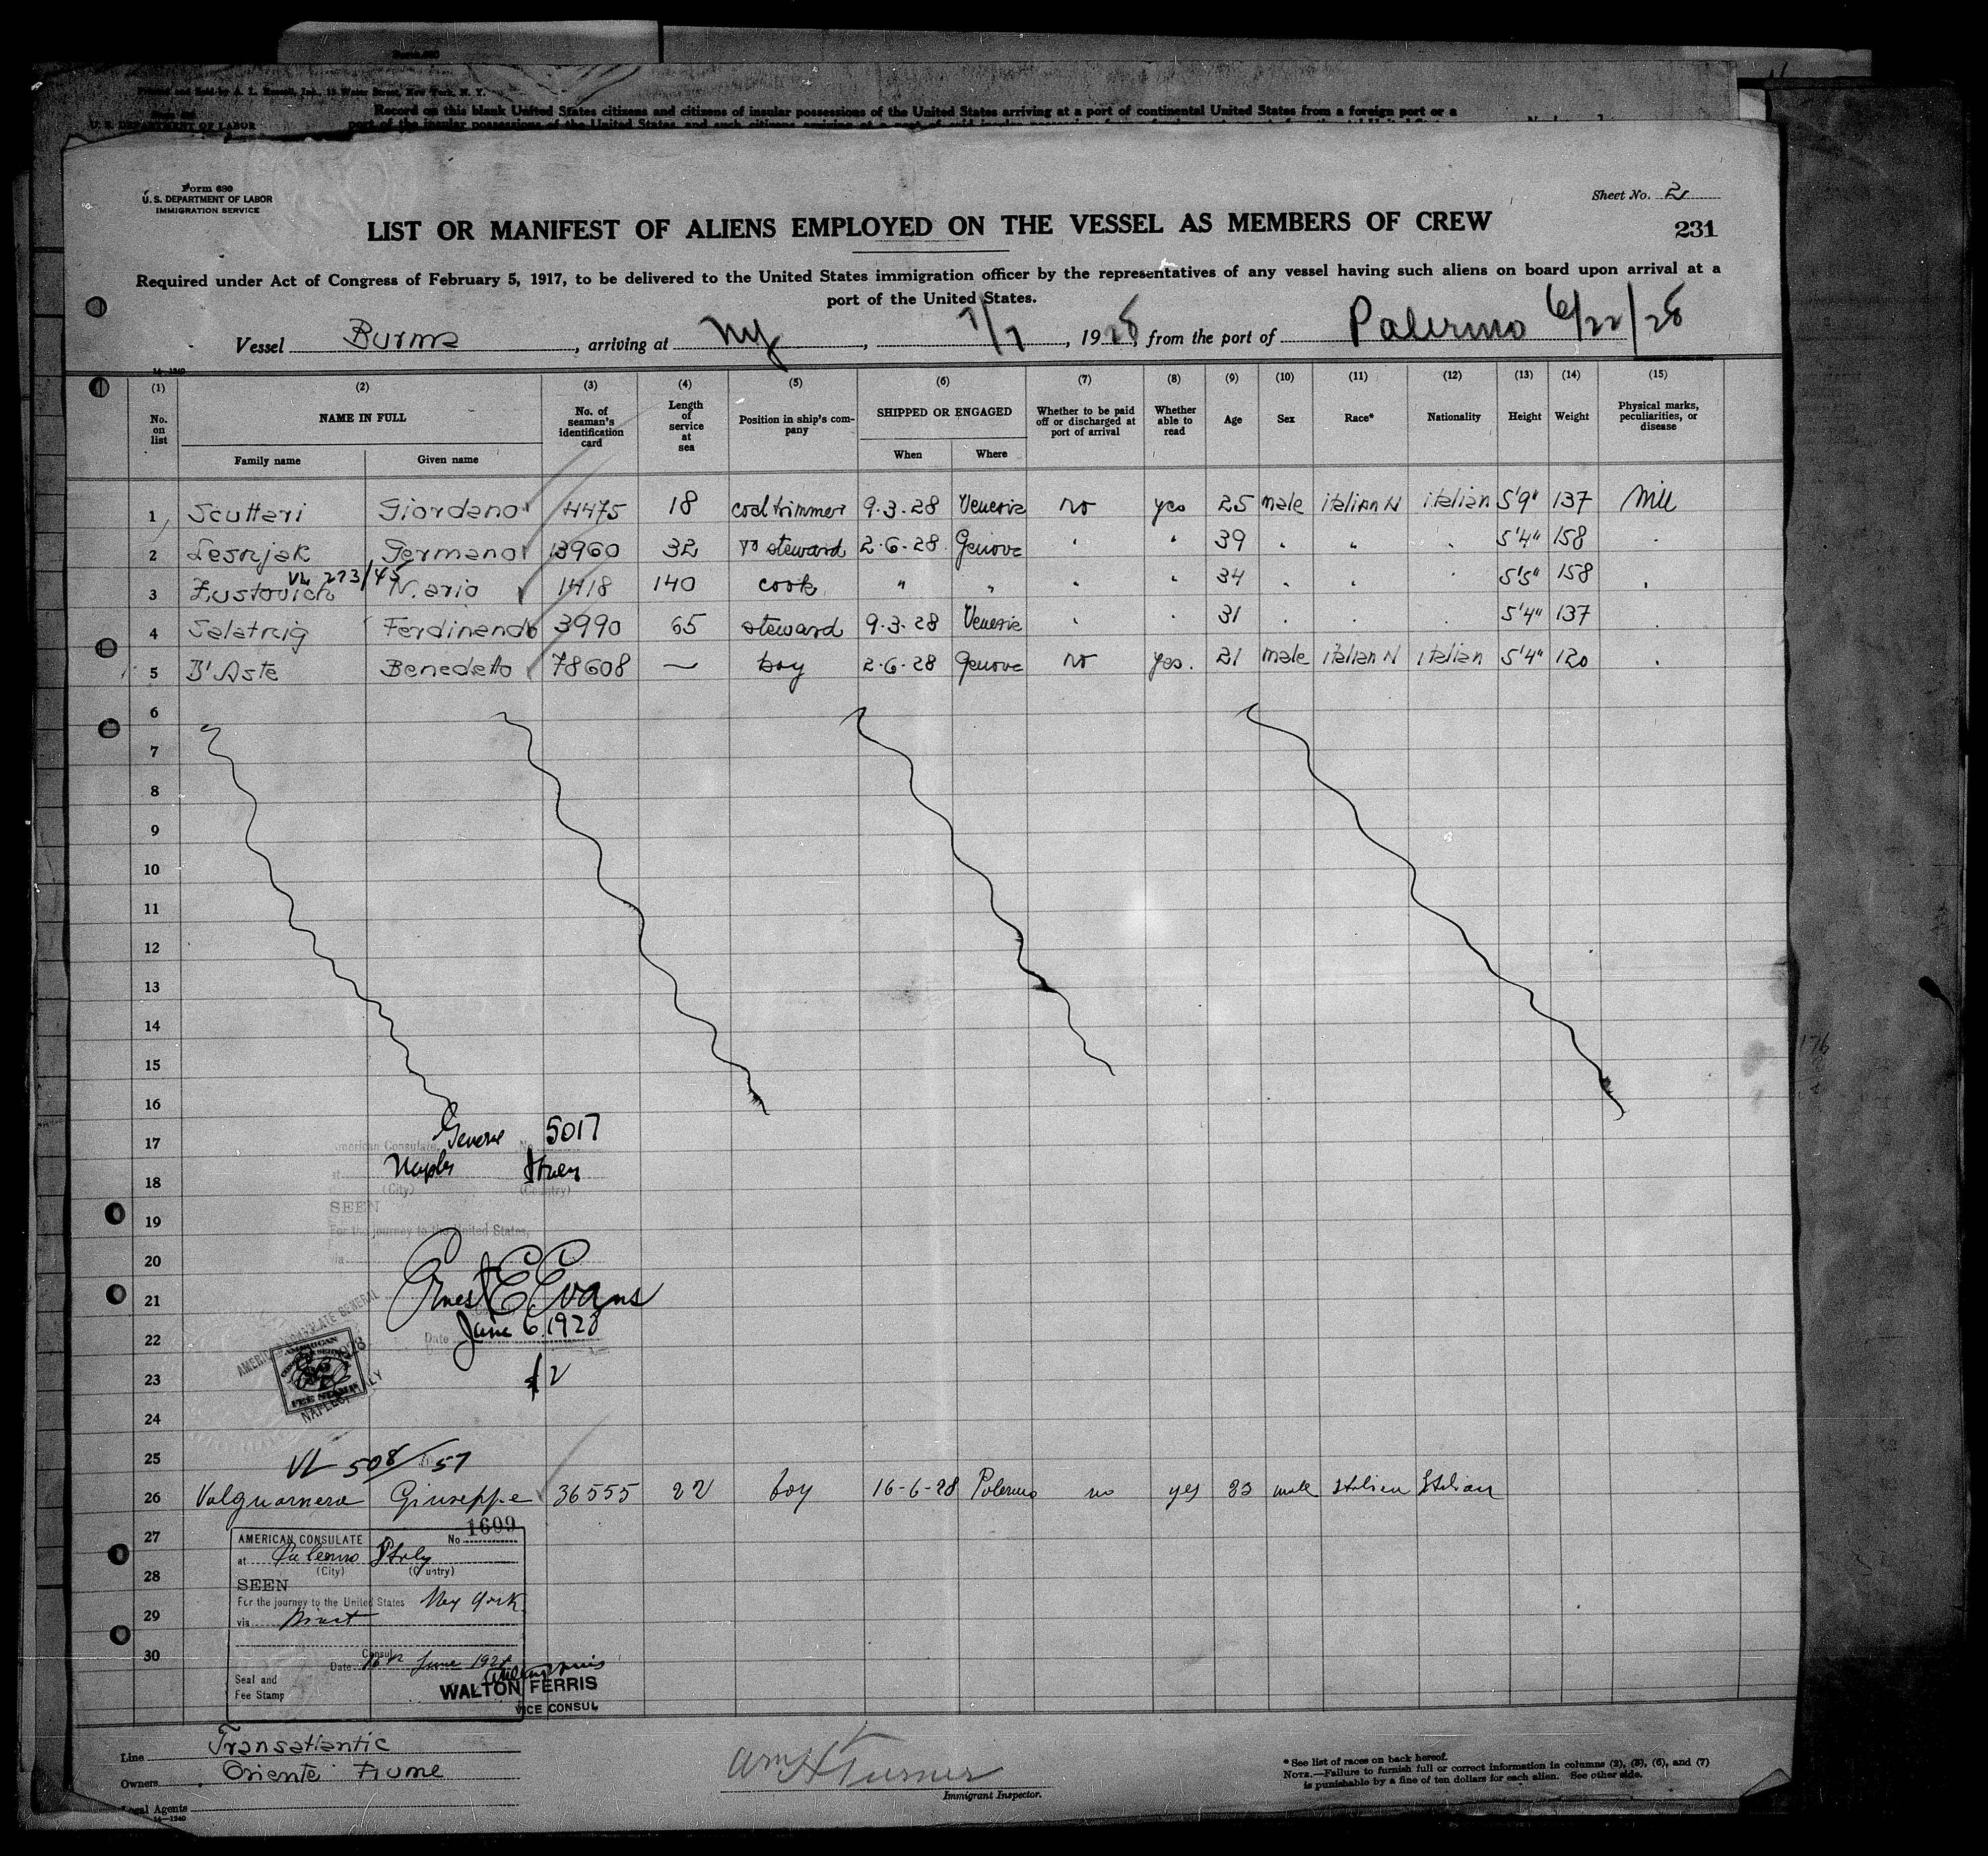 Printed and Sold by A. L. Russell, Inc., 15 Water Street, New York, N. Y.
Record on this blank United States citizens and citizens of insular possessions of the United States arriving at a port of continental United States from a foreign port or a
U. S. DEPARTMENT OF LABOR
Form 680
U. S. DEPARTMENT OF LABOR
IMMIGRATION SERVICE
Sheet No. 2
LIST OR MANIFEST OF ALIENS EMPLOYED ON THE VESSEL AS MEMBERS OF CREW
231
Required under Act of Congress of February 5, 1917, to be delivered to the United States immigration officer by the representatives of any vessel having such aliens on board upon arrival at a
port of the United States.
Vessel Burma, arriving at NY, 7/7, 1928, from the port of Palermo 6/22/28
14—1240
(1) (2) (3) (4) (5) (6) (7) (8) (9) (10) (11) (12) (13) (14) (15)
No. on list NAME IN FULL No. of seaman's identification card Length of service at sea Position in ship's company SHIPPED OR ENGAGED Whether to be paid off or discharged at port of arrival Whether able to read Age Sex Race* Nationality Height Weight Physical marks, peculiarities, or disease
Family name Given name When Where
1 Scuttari Giordano 4475 18 coal trimmer 9.3.28 Venezia no yes 25 male italian N italian 5'9" 137 Nill
2 Lesnjak Germano 13960 32 steward 2.6.28 Genova " " 39 " " " 5'4" 158
VL 273/45
3 Zustovich N.ario 1418 140 cook " " " " 34 " " 5'5" 158
4 Salatnig Ferdinando 3990 65 steward 9.3.28 Venezia " " 31 5'4" 137
5 D'Aste Benedetto 78608 — boy 2.6.28 Genova no yes. 21 male italian N italian 5'4" 120
6
7
8
9
10
11
12
13
14
15
16
17 American Consulate General No. 5017
at Naples Italy
18 (City) (Country)
SEEN
19 For the journey to the United States,
20 via
21 Ernest E Evans
22 Date June 6, 1928
AMERICAN CONSULATE GENERAL
AMERICAN
FEE STAMP
NAPLES, ITALY
23 $2
24
25 VL 508/57
26 Valguarnera Giuseppe 36555 22 boy 16-6-28 Palermo no yes 23 male Italian Italian
27 AMERICAN CONSULATE No 1609
at Palermo Italy
28 (City) (Country)
SEEN
For the journey to the United States New York
29 via
30 Consul
Date 16th June 1928
Seal and
Fee Stamp
WALTON FERRIS
VICE CONSUL
Line Transatlantic
Owners Oriente Fiume
Local Agents
14—1240
Wm H Turner
Immigrant Inspector.
* See list of races on back hereof.
NOTE.—Failure to furnish full or correct information in columns (2), (5), (6), and (7)
is punishable by a fine of ten dollars for each alien. See other side.